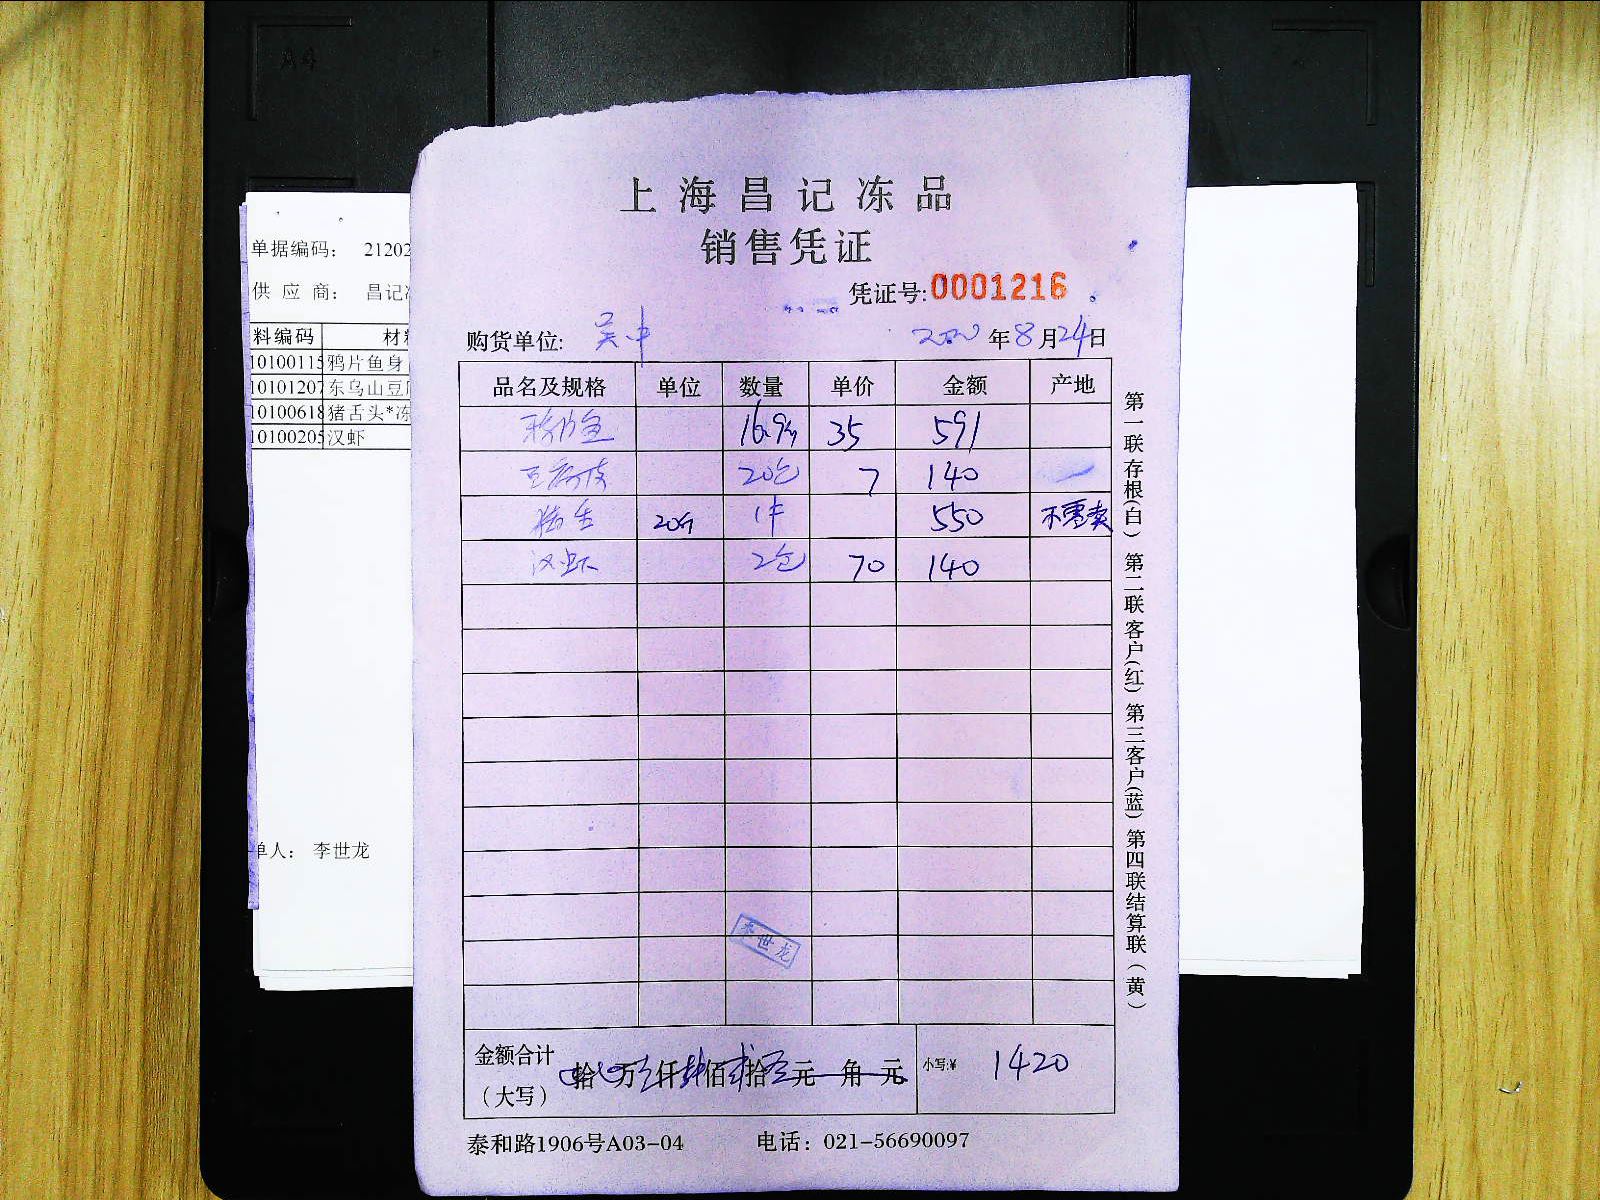 上海昌记冻品
销售凭证
凭证号:0001216
购货单位: 吴中 2020年8月24日
品名及规格 单位 数量 单价 金额 产地
16.9斤 35 591
豆腐皮 20包 7 140
猪舌 20斤 1件 550 不零卖
汉虾 2包 70 140
李世龙
金额合计
(大写)
拾 万 仟 佰 拾 元 角 元 小写:¥ 1420
泰和路1906号A03-04 电话：021-56690097
第一联存根(白) 第二联客户(红) 第三客户(蓝) 第四联结算联(黄)
单据编码： 21202
供应商： 昌记
料编码 材
10100115 鸦片鱼身
10101207 东乌山豆
10100618 猪舌头*冻
10100205 汉虾
单人： 李世龙
A4